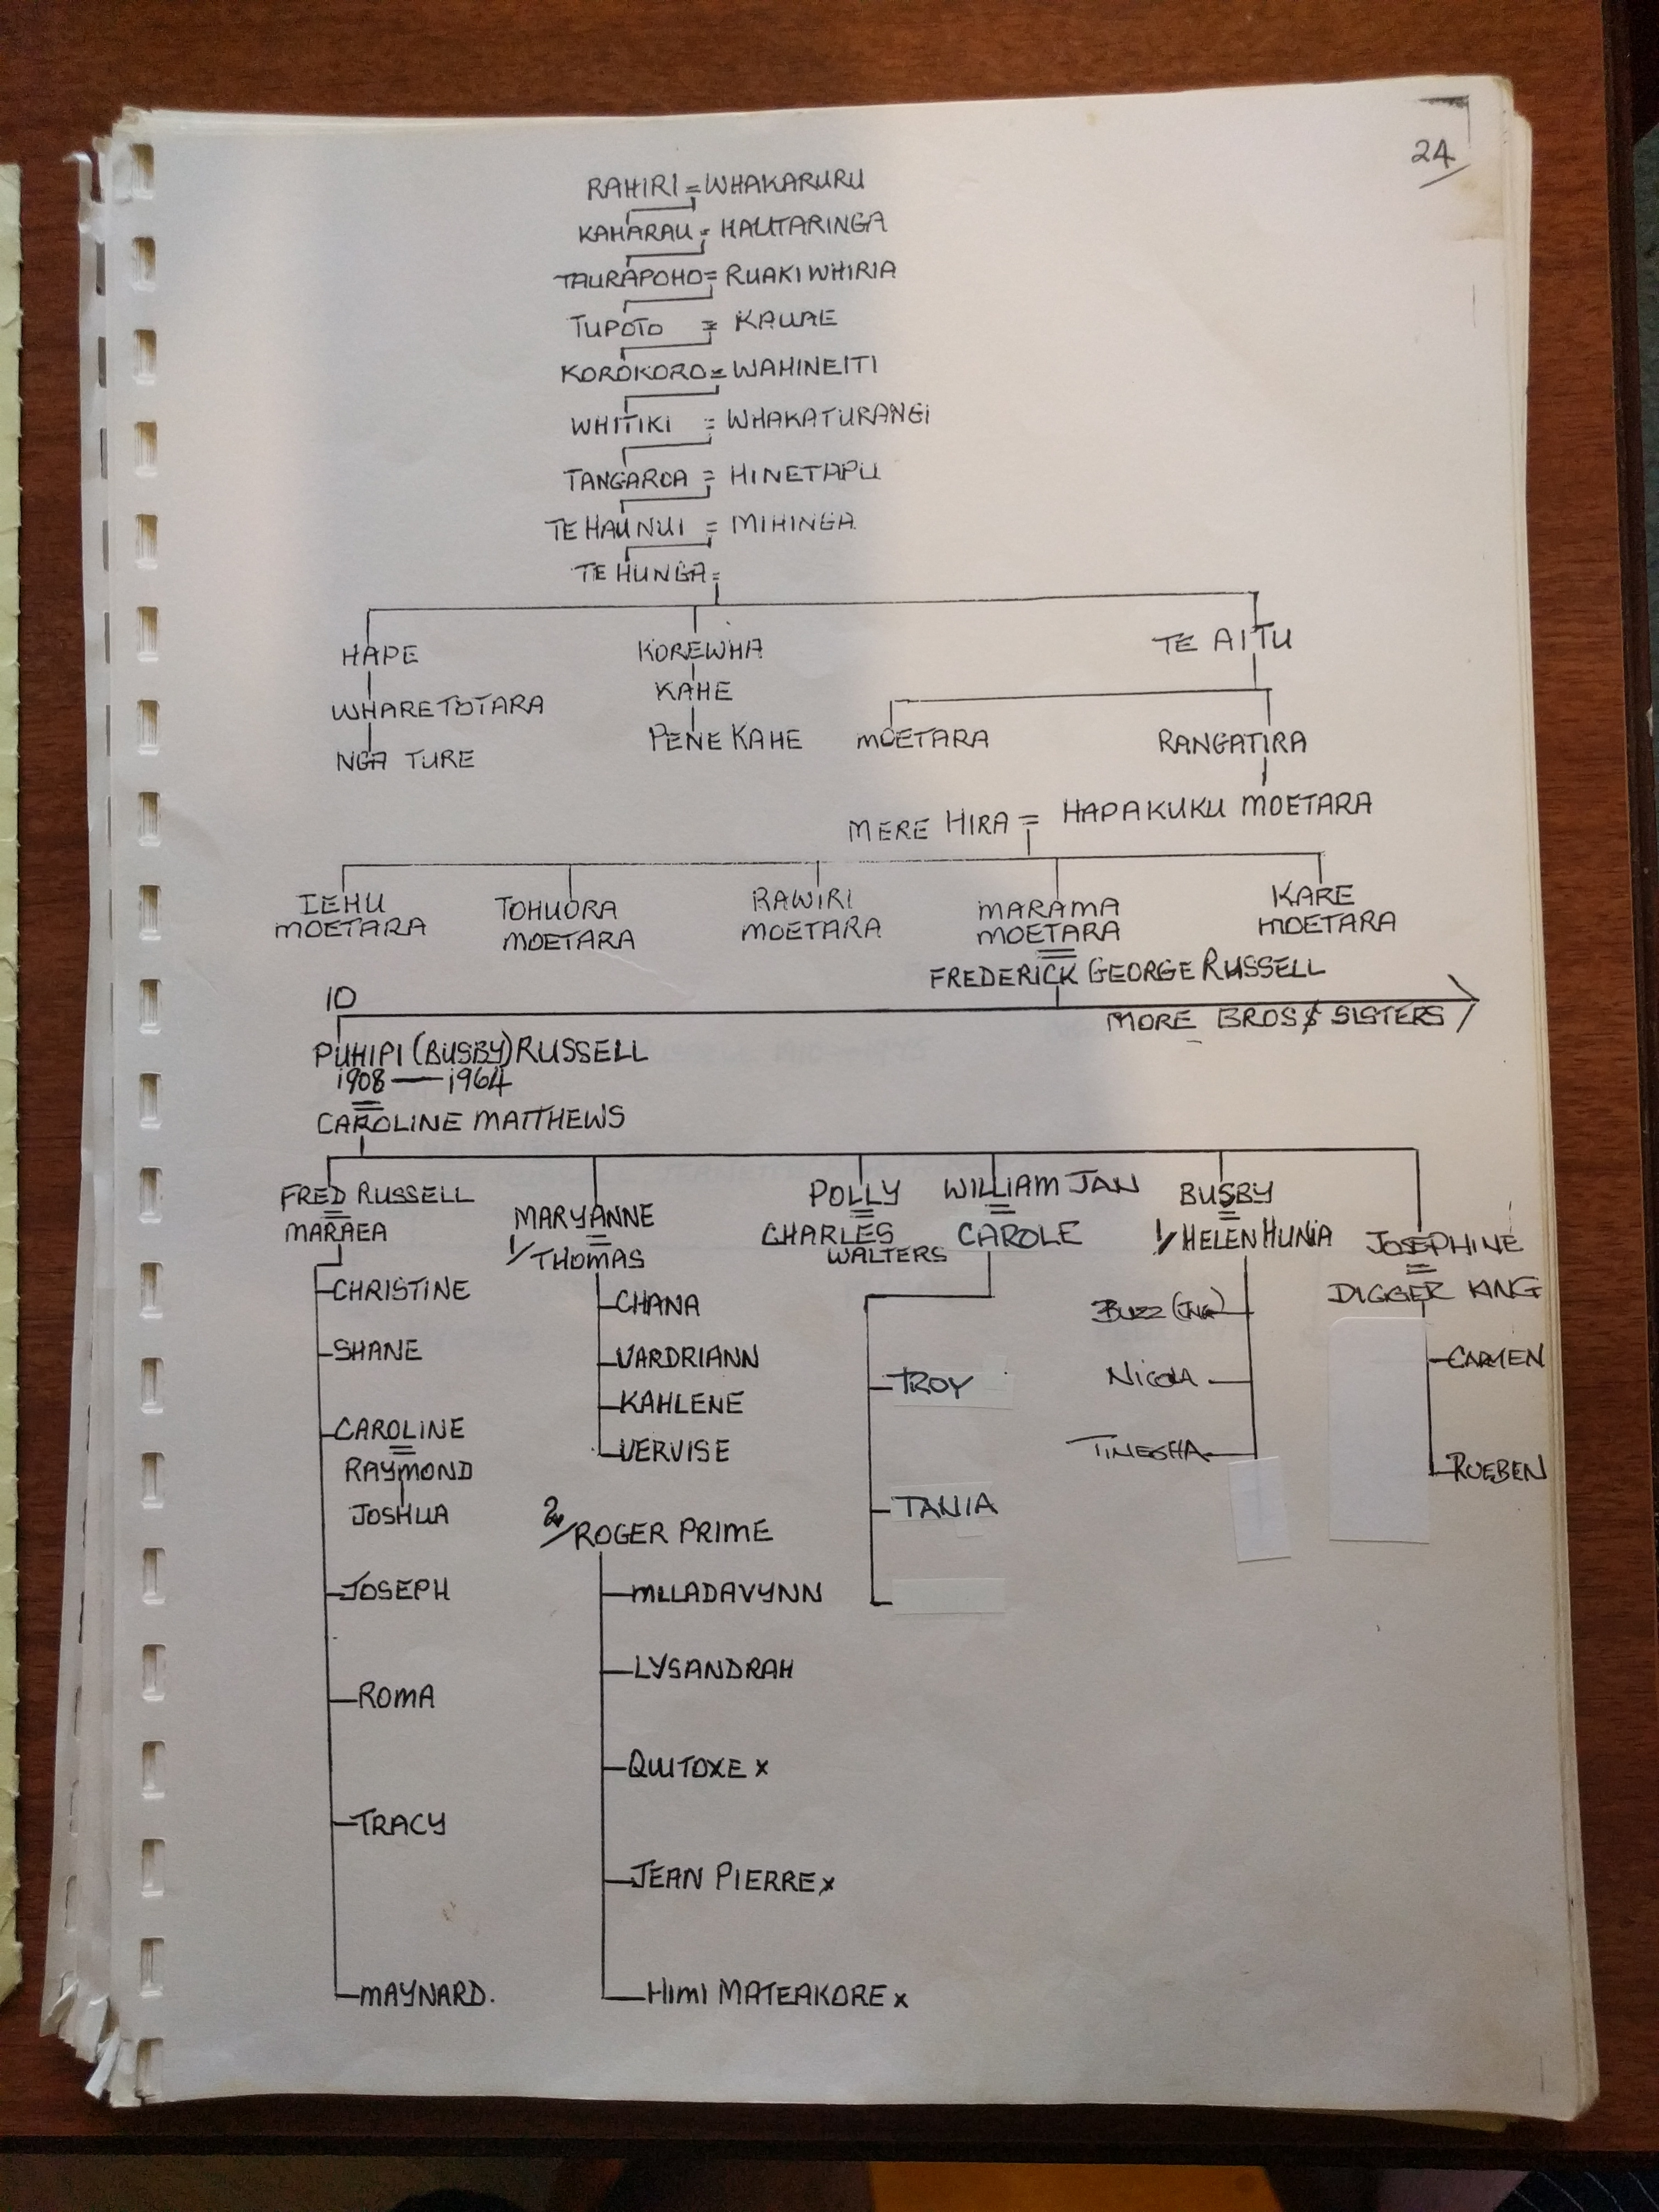 24
RAHIRI = WHAKARURU
KAHARAU = HAUTARINGA
TAURAPOHO = RUAKIWHIRIA
TUPOTO = KAWAE
KOROKORO = WAHINEITI
WHITIKI = WHAKATURANGI
TANGAROA = HINETAPU
TE HAUNUI = MIHINGA
TE HUNGA =
HAPE KOREWHA TE AITU
WHARETOTARA KAHE
NGA TURE PENE KAHE MOETARA RANGATIRA
MERE HIRA = HAPAKUKU MOETARA
IEHU TOHUORA RAWIRI MARAMA KARE
MOETARA MOETARA MOETARA MOETARA MOETARA
FREDERICK GEORGE RUSSELL
10
MORE BROS & SISTERS
PUHIPI (BUSBY) RUSSELL
1908 — 1964
CAROLINE MATTHEWS
FRED RUSSELL
MARAEA
CHRISTINE
SHANE
CAROLINE
RAYMOND
JOSHUA
JOSEPH
ROMA
TRACY
MAYNARD.
MARYANNE
1/ THOMAS
CHANA
VARDRIANN
KAHLENE
VERVISE
2/ ROGER PRIME
MLLADAVYNN
LYSANDRAH
QUITOXE x
JEAN PIERRE x
HIMI MATEAKORE x
POLLY
CHARLES
WALTERS
WILLIAM JAN
CAROLE
TROY
TANIA
BUSBY
1/ HELEN HUNIA
BUZZ (JNR)
NICOLA
TINEGHA
JOSEPHINE
DIGGER KING
CARMEN
RUEBEN